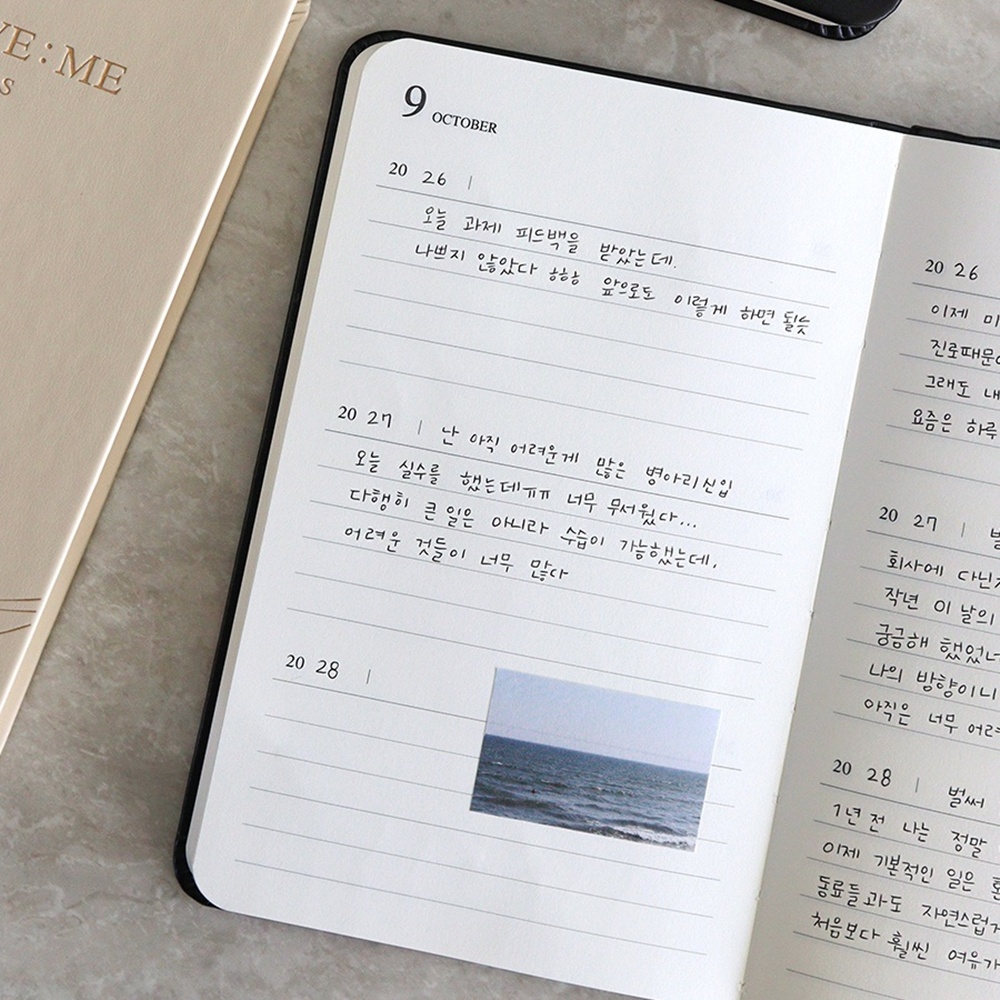 VE:ME
S
9 OCTOBER
20 26 |
오늘 과제 피드백을 받았는데.
나쁘지 않았다 ㅎㅎㅎ 앞으로도 이렇게 하면 될듯
20 27 | 난 아직 어려운게 많은 병아리신입
오늘 실수를 했는데ㅠㅠ 너무 무서웠다...
다행히 큰 일은 아니라 수습이 가능했는데,
어려운 것들이 너무 많다
20 28 |
20 26
이제 미
진로때문에
그래도 내
요즘은 하루
20 27 |
회사에 다닌지
작년 이 날의
궁금해 했었
나의 방향이니
아직은 너무 어려
20 28 | 벌써
1년 전 나는 정말
이제 기본적인 일은
동료들과도 자연스럽게
처음보다 훨씬 여유가